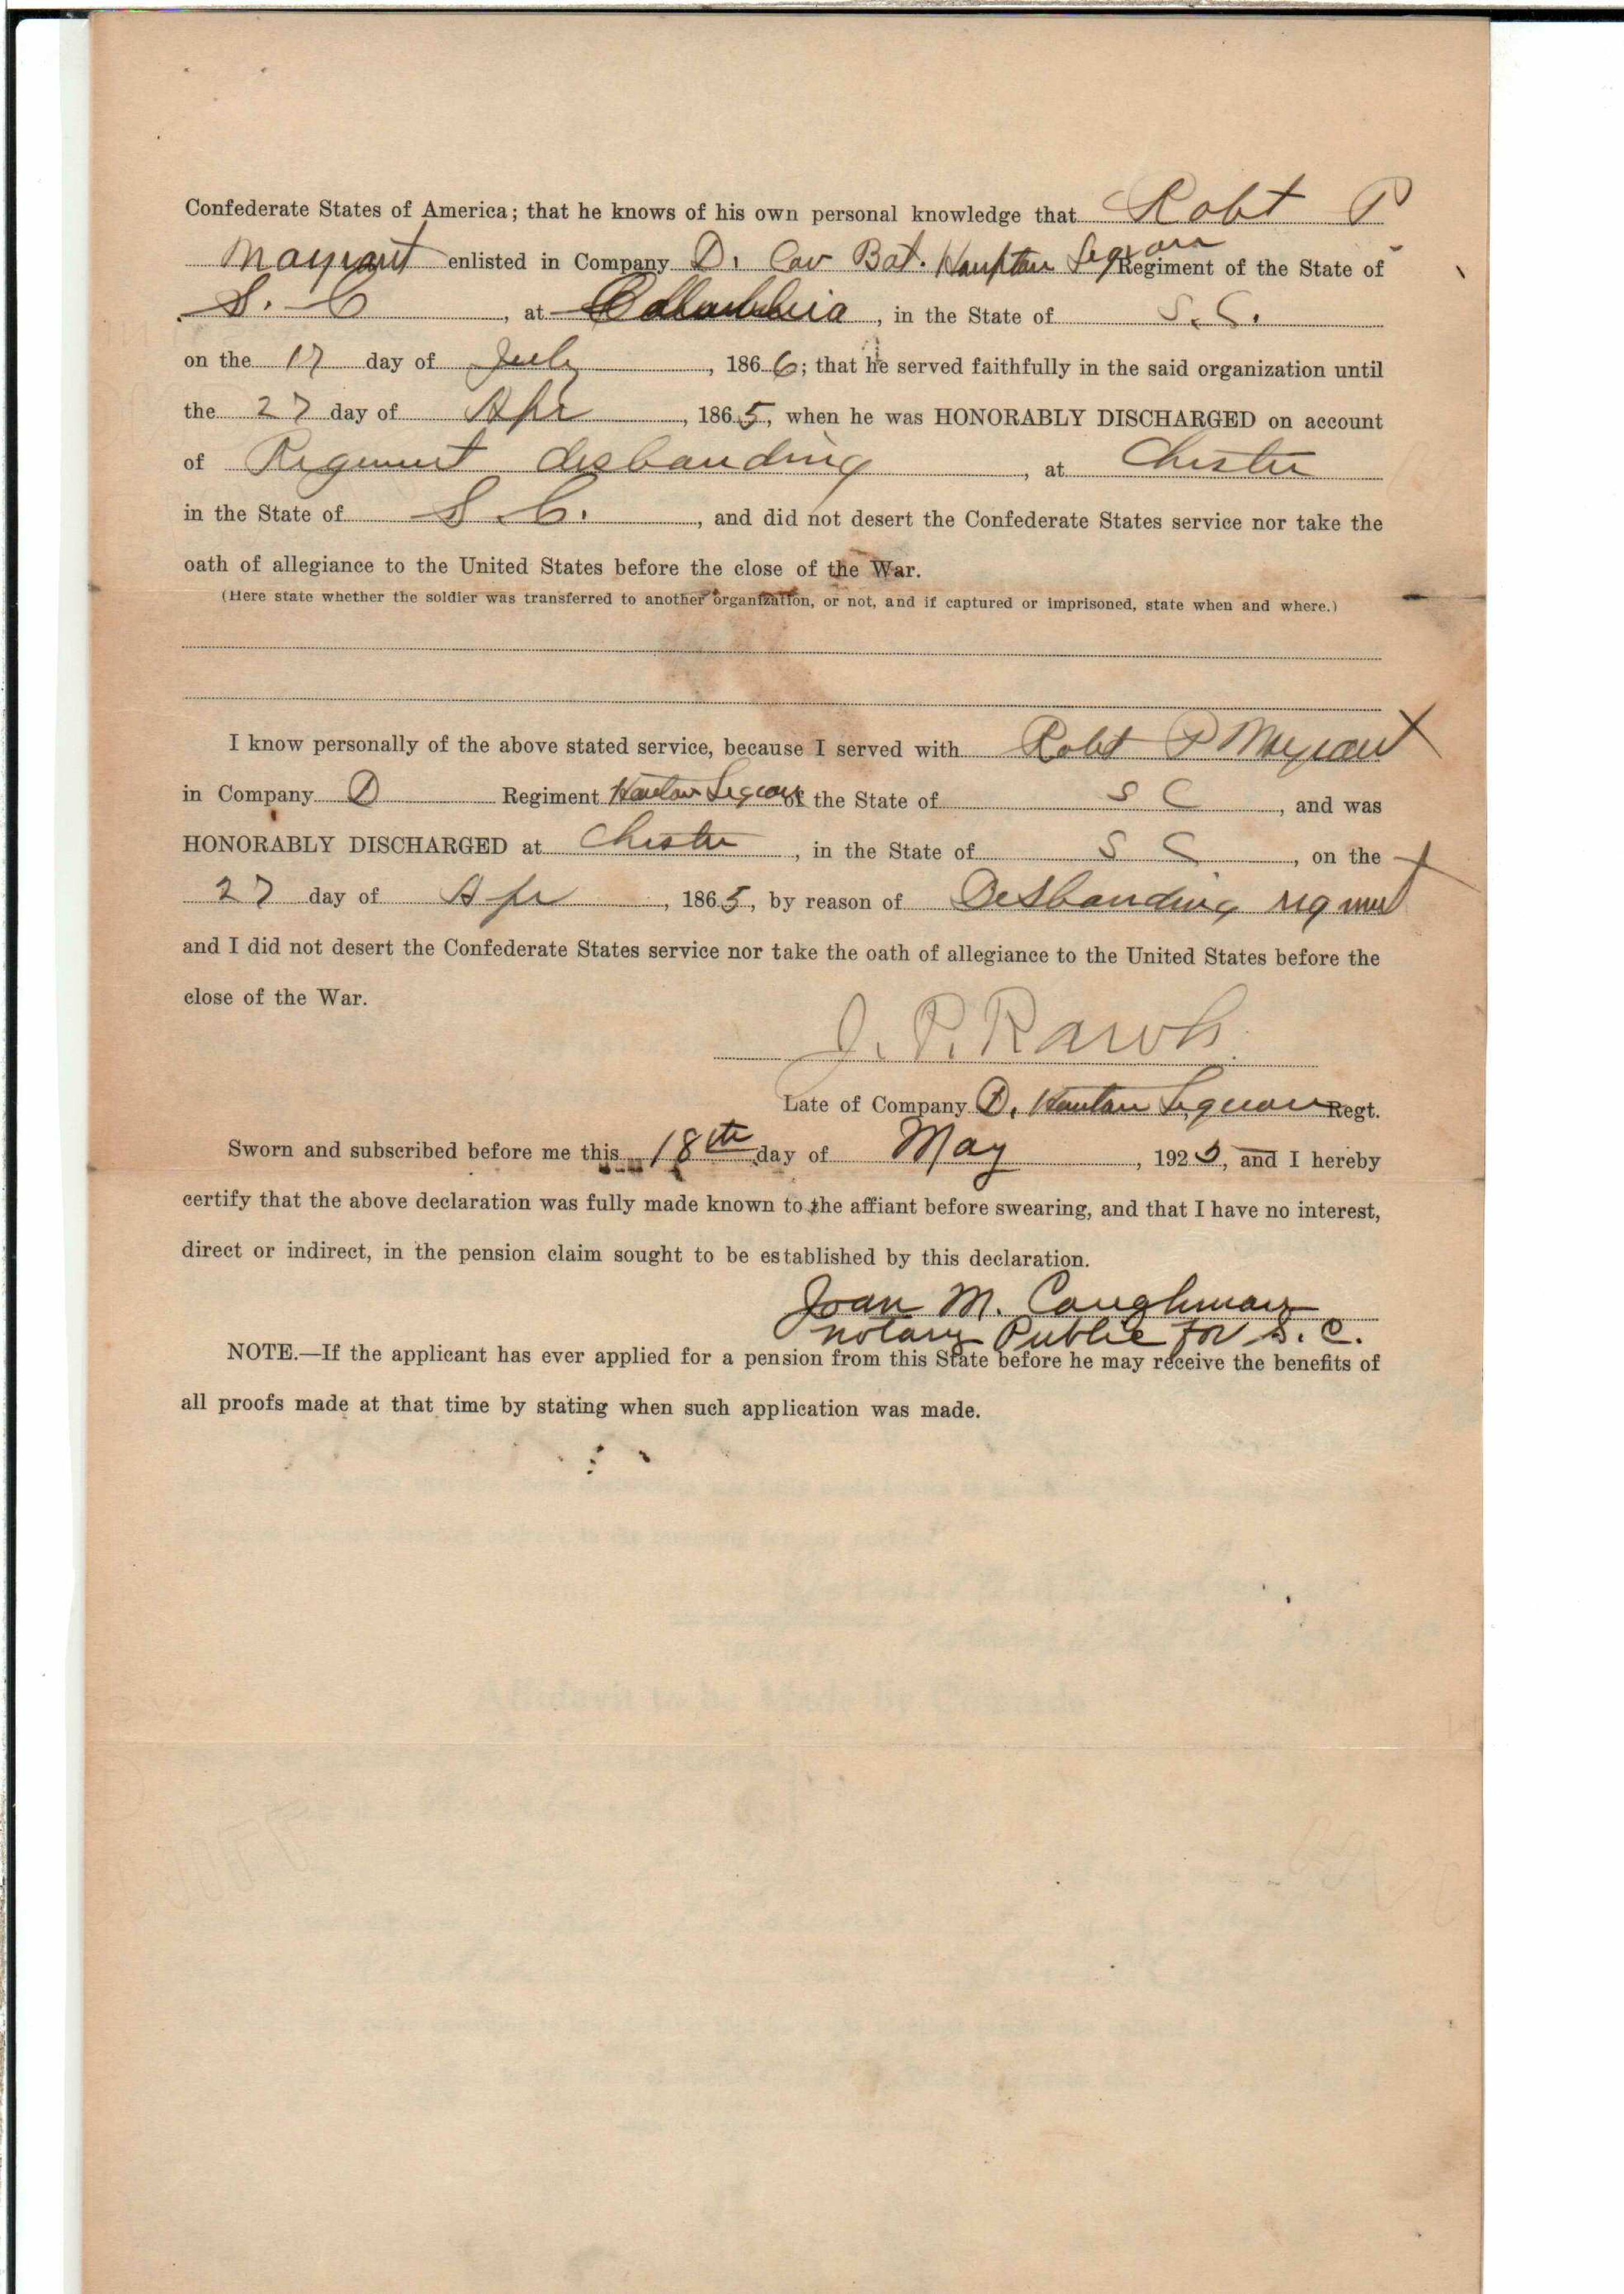 Confederate States of America; that he knows of his own personal knowledge that Robt P
Mayrant enlisted in Company D. Cav Bat. Hampton Legion Regiment of the State of
S. C , at Collumbia, in the State of S. C.
on the 17 day of July , 186 6; that he served faithfully in the said organization until
the 27 day of Apr , 186 5, when he was HONORABLY DISCHARGED on account
of Regiment disbanding , at Chester
in the State of S. C. , and did not desert the Confederate States service nor take the
oath of allegiance to the United States before the close of the War.
(Here state whether the soldier was transferred to another organization, or not, and if captured or imprisoned, state when and where.)
I know personally of the above stated service, because I served with Robt P Mayrant X
in Company D Regiment Legion of the State of S C , and was
HONORABLY DISCHARGED at Chester , in the State of S C , on the X
27 day of Apr , 186 5, by reason of Desbanding
and I did not desert the Confederate States service nor take the oath of allegiance to the United States before the
close of the War.
J. P. Rawls
Late of Company D. Legion Regt.
Sworn and subscribed before me this 18th day of May , 192 3, and I hereby
certify that the above declaration was fully made known to the affiant before swearing, and that I have no interest,
direct or indirect, in the pension claim sought to be established by this declaration.
Joan M. Caughman
Notary Public for S. C.
NOTE.—If the applicant has ever applied for a pension from this State before he may receive the benefits of
all proofs made at that time by stating when such application was made.